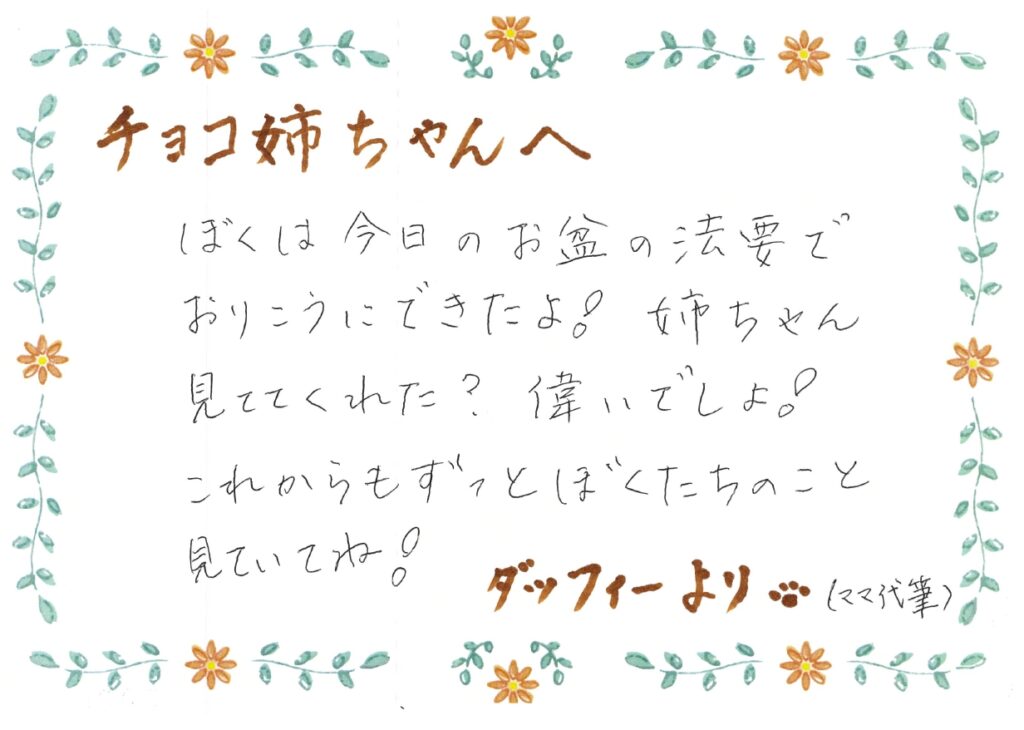 チョコ姉ちゃんへ
ぼくは今日のお盆の法要で
おりこうにできたよ！ 姉ちゃん
見ててくれた？ 偉いでしょ！
これからもずっとぼくたちのこと
見ていてね！
ダッフィーより (ママ代筆)